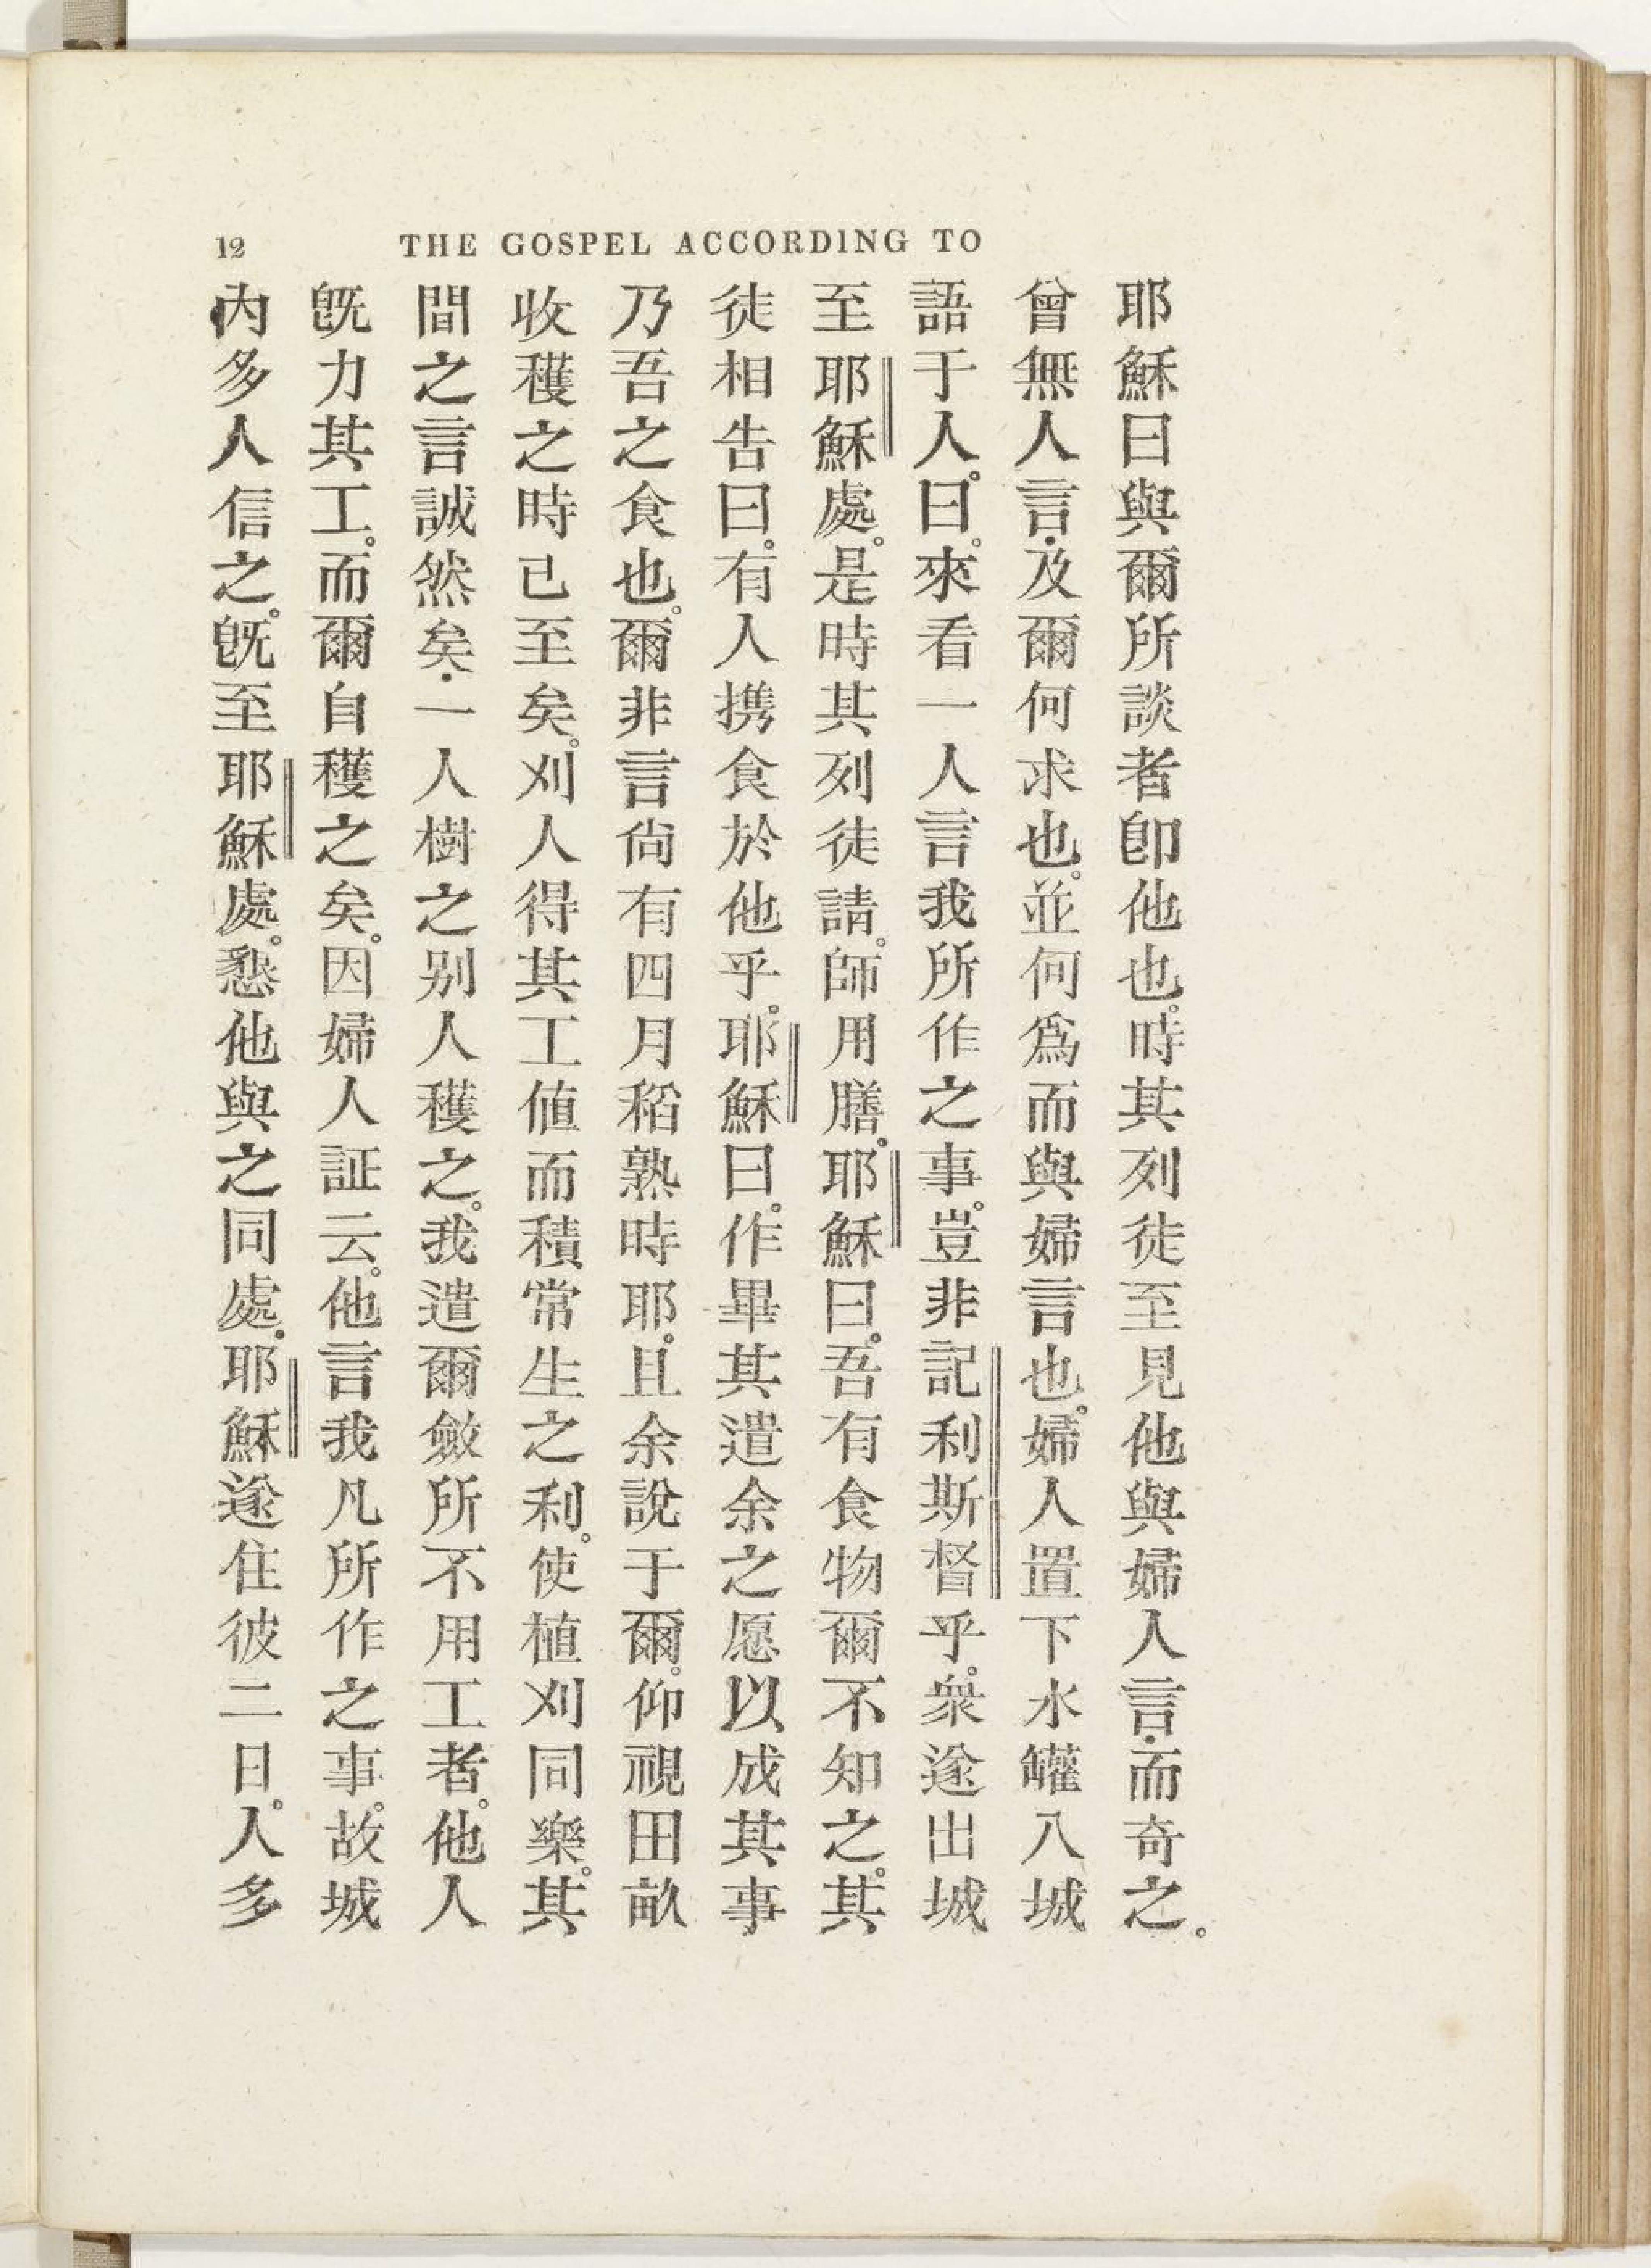 12 THE GOSPEL ACCORDING TO
耶穌曰與爾所談者卽他也。時其列徒至見他與婦人言.而奇之。
曾無人言.及爾何求也。並何爲而與婦言也。婦人置下水罐入城
語于人。曰。來看一人言我所作之事。豈非記利斯督乎。衆遂出城
至耶穌處。是時其列徒請。師用膳。耶穌曰。吾有食物爾不知之。其
徒相告曰。有人携食於他乎。耶穌曰。作畢其遣余之愿以成其事
乃吾之食也。爾非言尙有四月稻熟時耶。且余說于爾。仰視田畝
收穫之時已至矣。刈人得其工値而積常生之利。使植刈同樂。其
間之言誠然矣.一人樹之别人穫之。我遣爾斂所不用工者。他人
旣力其工。而爾自穫之矣。因婦人証云。他言我凡所作之事。故城
內多人信之。旣至耶穌處。懇他與之同處。耶穌遂住彼二日。人多